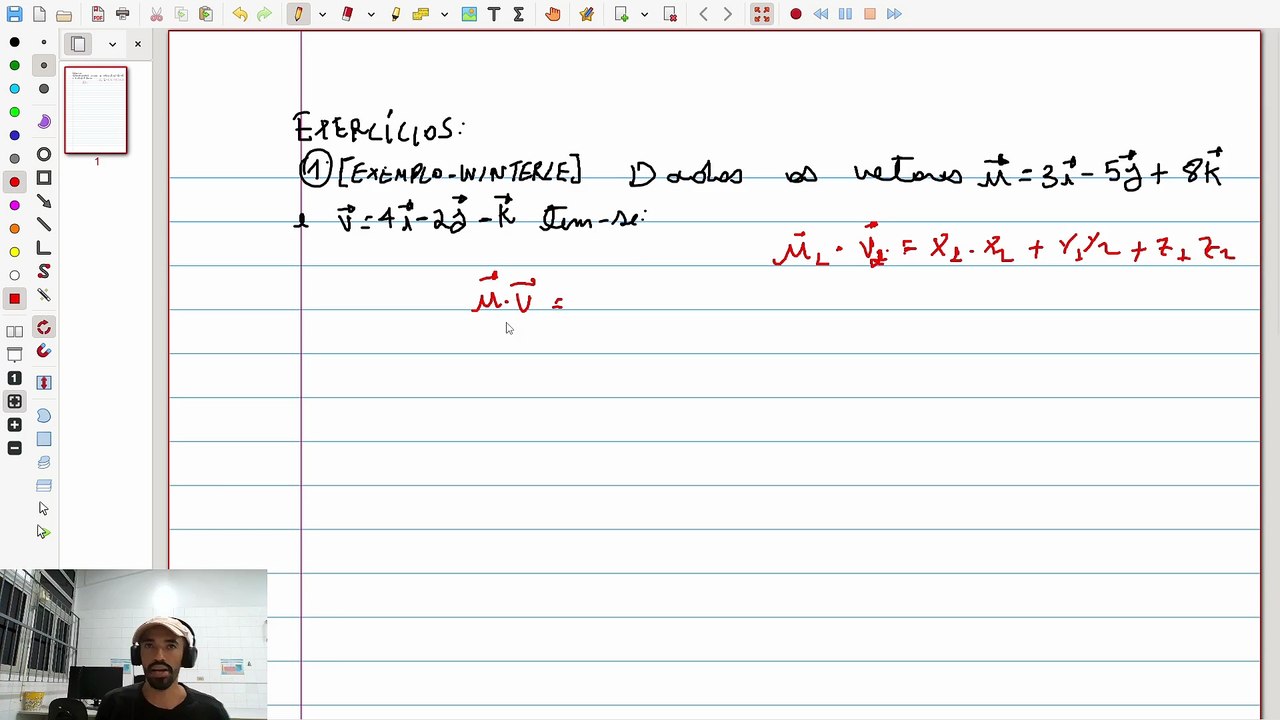 EXERCÍCIOS:
① [EXEMPLO-WINTERLE] Dados os vetores u⃗ = 3i⃗ - 5j⃗ + 8k⃗
e v⃗ = 4i⃗ - 2j⃗ - k⃗ tem-se:
u⃗₁ · v⃗₂ = x₁ · x₂ + y₁y₂ + z₁z₂
u⃗ · v⃗ =
1
1